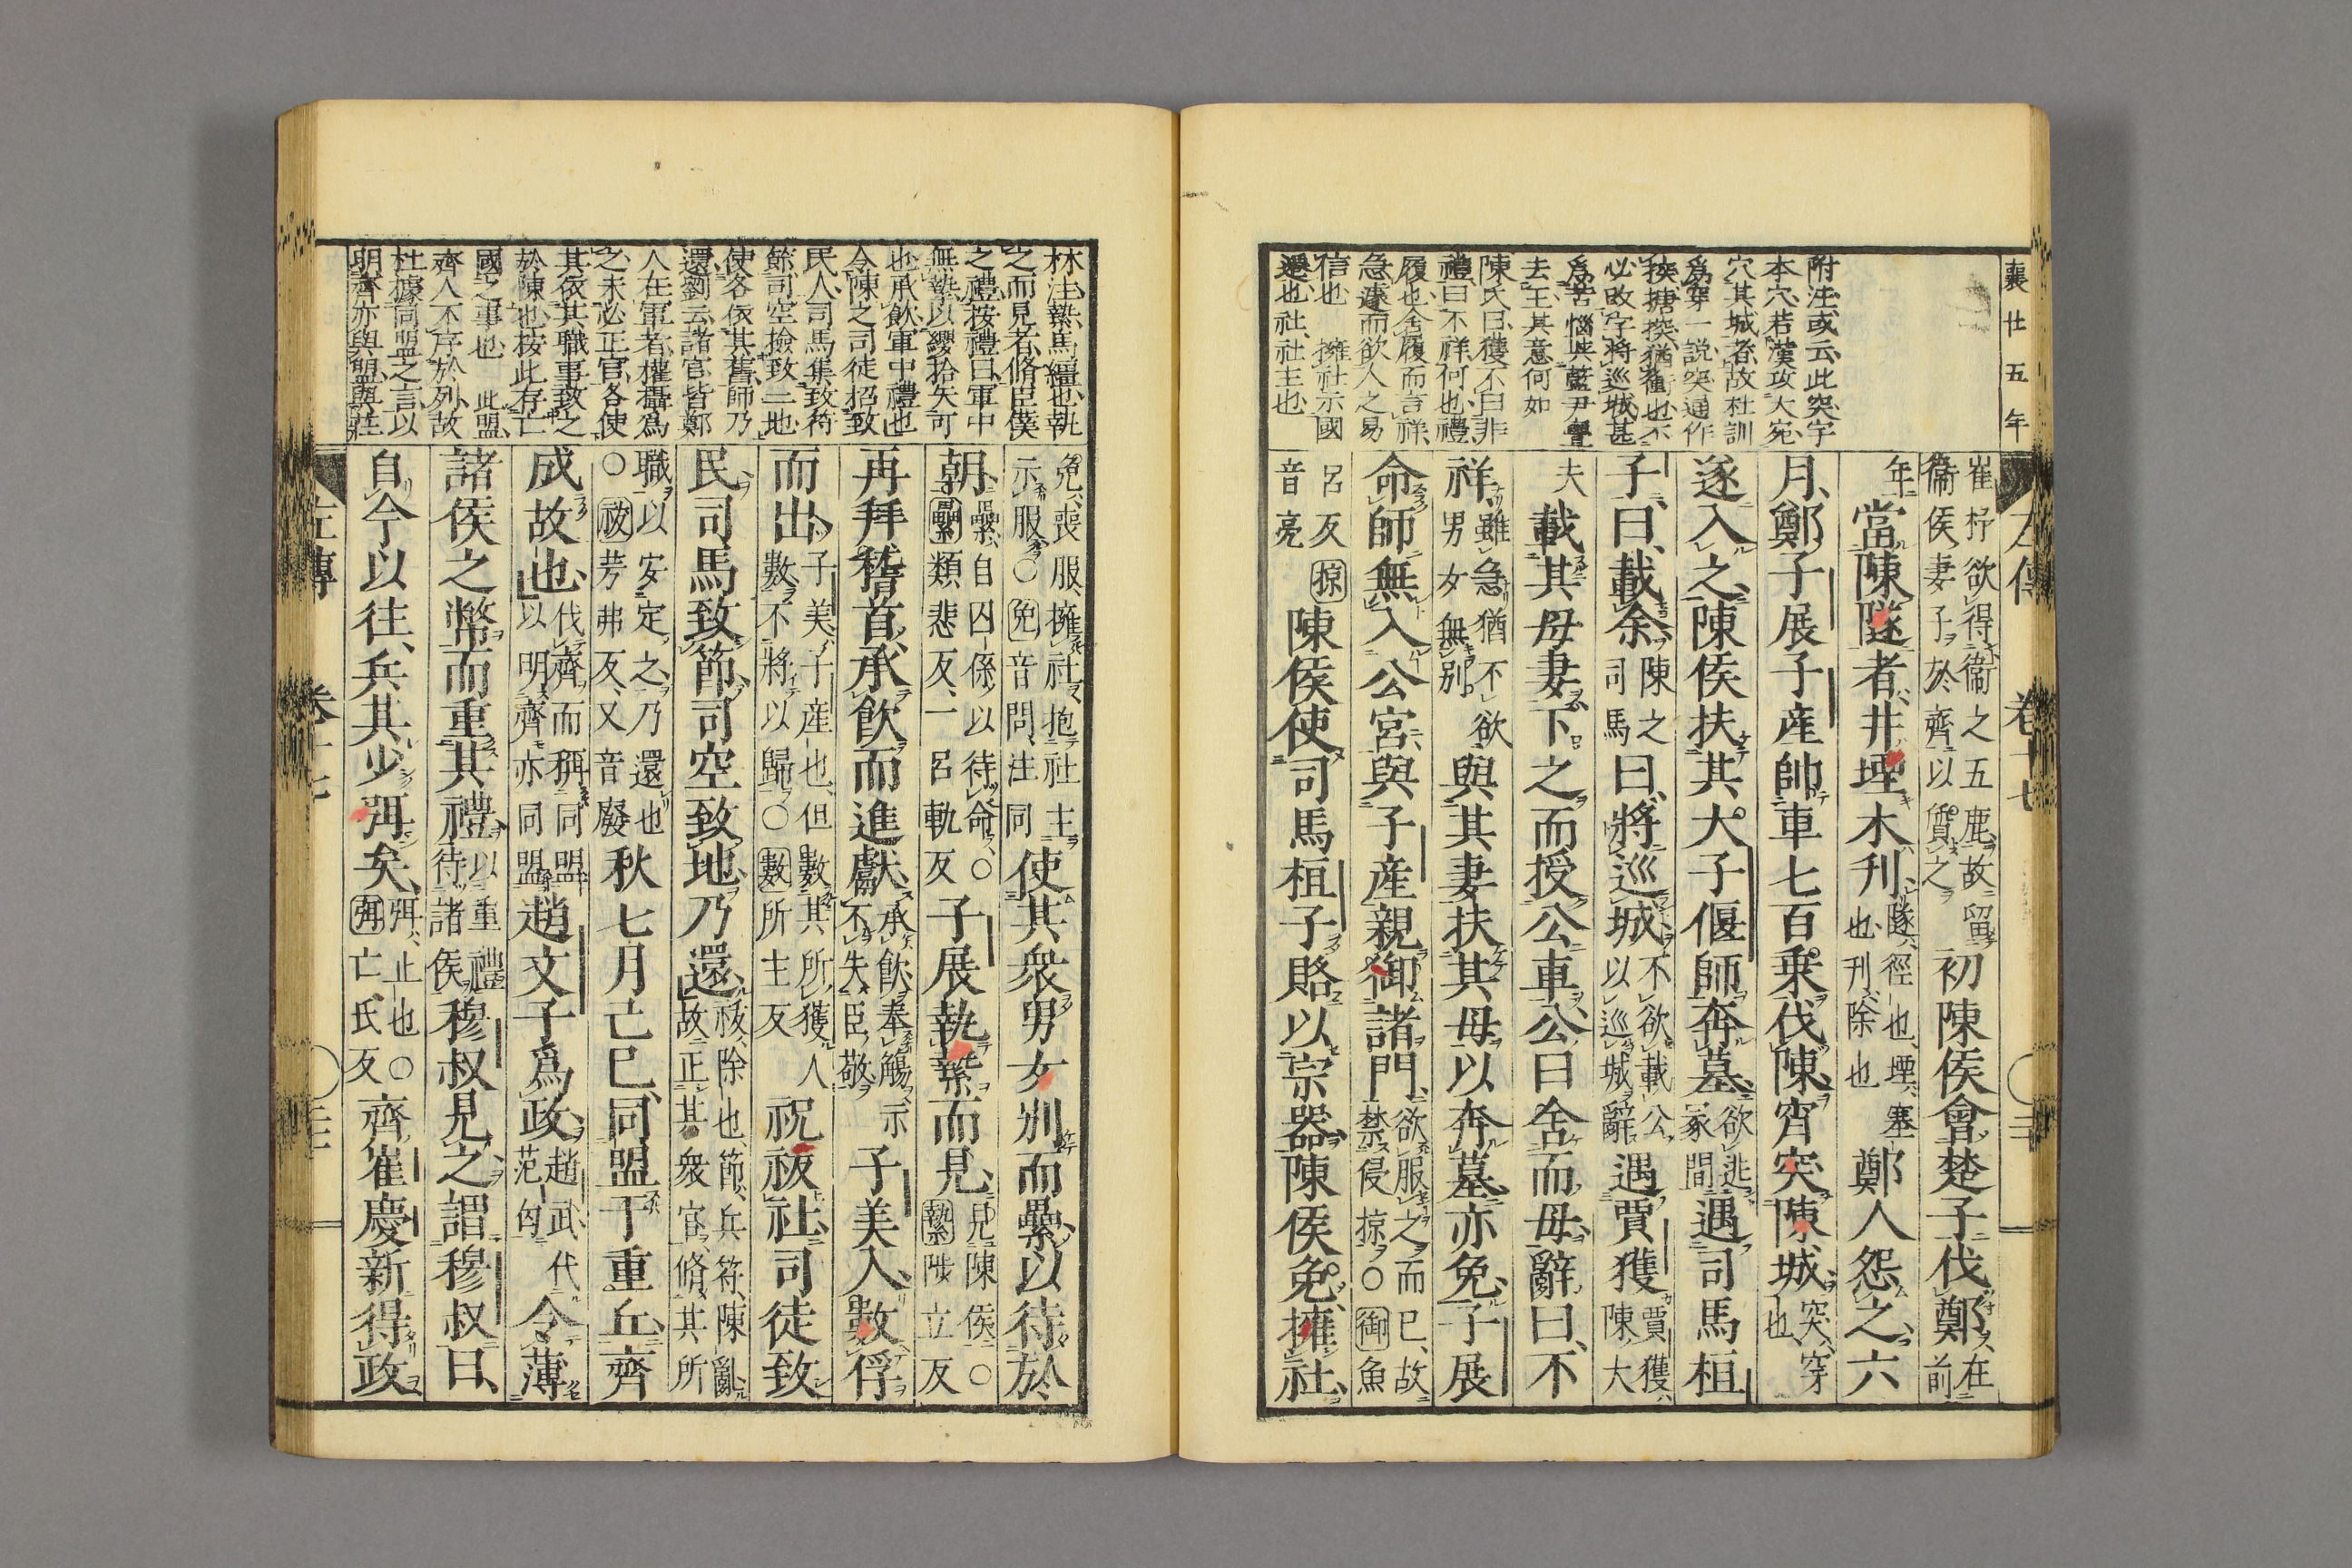 襄廿五年
左傳 卷十七
附注或云此突字
本穴若漢攻大宛
穴其城者故杜訓
爲穿一說突通作
揬搪揬猶衝也不
必改字將巡城甚
爲苦惱與藍尹亹
去王其意何如
陳氏曰獲不曰非
禮曰不祥何也禮
履也舍履而言祥
急遽而欲人之易
信也 擁社示國
也社社主也
崔杼欲得衞之五鹿故留衞侯妻子於齊以質之初陳侯會楚子伐鄭在前
年當陳隧者井堙木刋隧徑也堙塞也刋除也鄭人怨之六
月鄭子展子產帥車七百乘伐陳宵突陳城突穿也
遂入之陳侯扶其大子偃師奔墓欲逃冢間遇司馬桓
子曰載余陳之司馬曰將巡城不欲載公以巡城辭遇賈獲賈獲陳大
夫載其母妻下之而授公車公曰舍而母辭曰不
祥雖急猶不欲男女無別與其妻扶其母以奔墓亦免子展
命師無入公宮與子產親御諸門欲服之而已故禁侵掠○御魚
呂反掠音亮陳侯使司馬桓子賂以宗器陳侯免擁社
林注縶馬繮也執
之而見者脩臣僕
之禮按禮曰軍中
無摯以纓拾矢可
也承飲軍中禮也
令陳之司徒招致
民人司馬集致符
節司空撿致土地
使各依其舊師乃
還劉云諸官皆鄭
人在軍者權攝爲
之未必正官各使
其依其職事致之
於陳也按此存亡
國之事也 此盟
齊人不序於列故
杜據同盟之言以
明齊亦與盟與莊
免喪服擁社抱社主示服○免音問注同使其衆男女別而纍以待於
朝纍自囚係以待命○纍類悲反一呂軌反子展執縶而見見陳侯○縶陟立反
再拜稽首承飲而進獻承飲奉觴示不失臣敬子美入數俘
而出子美子產也但數其所獲人數不將以歸○數所主反祝祓社司徒致
民司馬致節司空致地乃還祓除也節兵符陳亂故正其衆官脩其所
職以安定之乃還也○祓芳弗反又音廢秋七月己巳同盟于重丘齊
成故也伐齊而稱同盟以明齊亦同盟趙文子爲政趙武代范匄令薄
諸侯之幣而重其禮以重禮待諸侯穆叔見之謂穆叔曰
自今以往兵其少弭矣弭止也○弭亡氏反齊崔慶新得政
左傳 卷十七